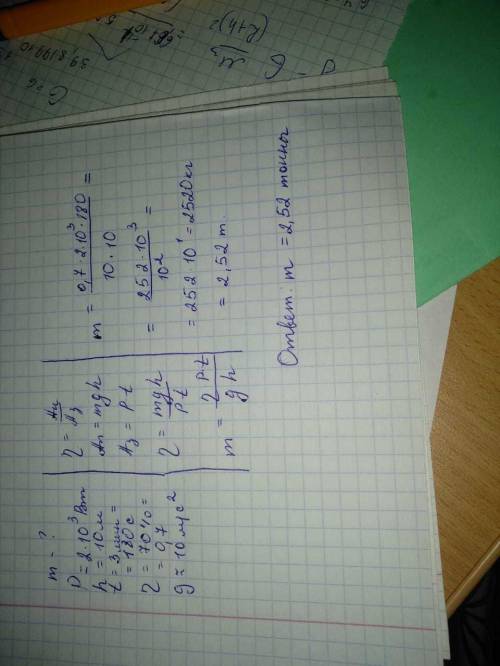 m - ?
P = 2·10³ Вт
h = 10 м
t = 3 мин =
= 180 с
η = 70% =
= 0,7
g ≈ 10 м/с²
η = Aп/Aз
Aп = mgh
Aз = Pt
η = mgh/Pt
m = ηPt/gh
m = 0,7·2·10³·180/10·10 =
= 252·10³/10² =
= 252·10¹ = 2520 кг
= 2,52 т.
Ответ: m = 2,52 тонны
(R+h)²